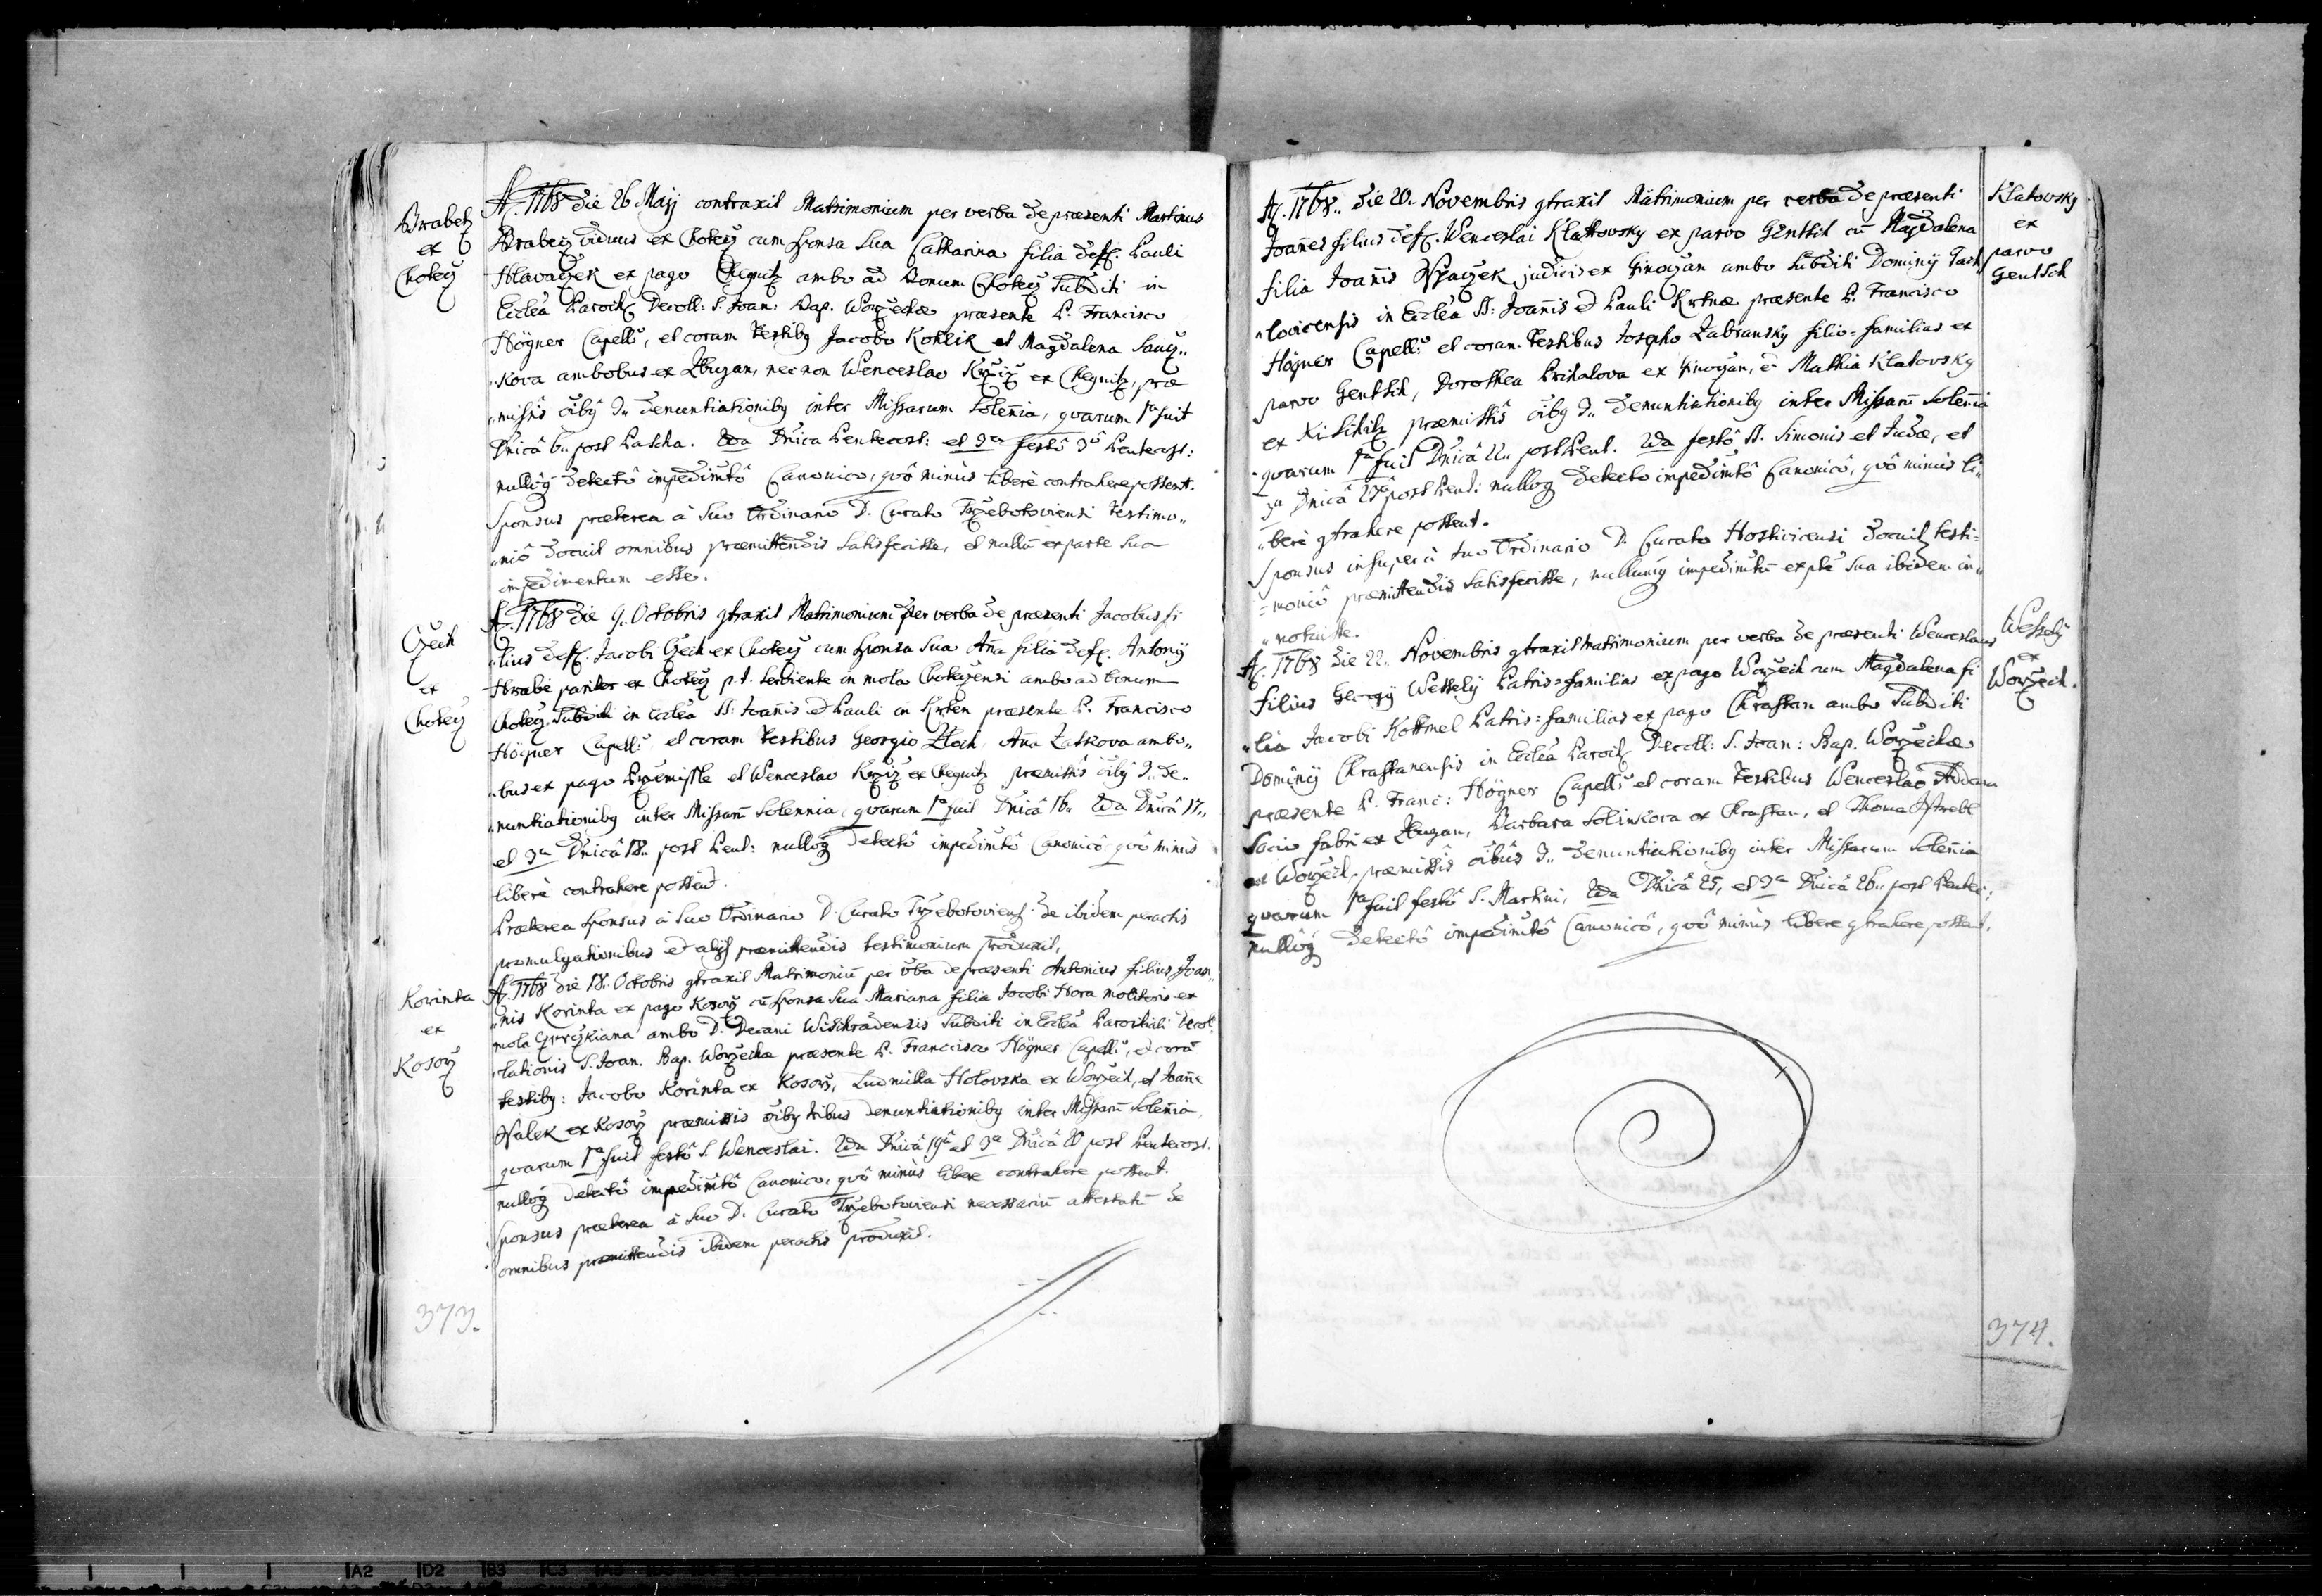 Brabetz
ex
Choteč
A. 1768 die 26 Maij contraxit Matrimonium per verba de praesenti Martinus
Brabecz viduus ex Choteč cum sponsa sua Catharina filia deff. Pauli
Hlavaczek ex pago Chegnitz ambo ad Bonum Choteč Subditi in
Ecclea Paroch. Decoll: S. Joan: Bap. Worzechae praesente P. Francisco
Högner Capell̃, et coram testiby Jacobo Kohlik et Magdalena
„kova ambobus ex Zbuzan, nec non Wenceslao Krziz ex Chegnitz, prae
„missis õibus 3„ denuntiationiby inter Missarum solẽnia, qvarum 1ᵃ fuit
Dnicâ 6„ post Pascha. 2da Dnica Pentecost: et 3ᵃ festô 3ô Pentecost:
nullôq detectô impedimtô Canonico, qvô minùs liberè contrahere possent.
Sponsus praeterea à suo Ordinario D. Curato Trzebotoviensi testimo„
„niô docuit omnibus praemittendis satisfecisse, et nullũ ex parte sua
impedimentum esse.
Czech
ex
Choteč
A. 1768 die 9. Octobris gtraxit Matrimonium per verba de praesenti Jacobus fi
„lius deff. Jacobi Czech ex Choteč cum sponsa sua Aña filia deff. Antonij
Hrabě pariter ex Choteč p.t. serviente in mola Choteczensi ambo ad bonum
Choteč Subditi in Ecclea SS: Joañis et Pauli in Krten praesente P. Francisco
Högner Capell̃ et coram testibus Georgio Zloch, Aña Zatkova ambo„
„bus ex pago Przemissle et Wenceslao Krziz ex Chegnitz praemissis õiby 3„ de„
„nuntiationiby inter Missarũ solennia, qvarum 1ᵃ fuit Dnicâ 16„ 2da Dnicâ 17„
et 3ᵃ Dnicâ 18„ post Pent: nullôq detectô impedimtô Canonicô qvô minùs
liberè contrahere possent.
Praeterea sponsus à suo Ordinario D. Curato Trzebotoviens. de ibidem peractis
promulgationibus et alijs praemittendis testimonium produxit.
Korinta
ex
Kosorz
A. 1768 die 18. Octobris gtraxit Matrimoniũ per vba de praesenti Antonius filius Joan„
„nis Korinta ex pago Kosorz cũ sponsa sua Mariana filia Jacobi Hora molitoris ex
mola ambo D. Decani Wischradensis Subditi in Ecclea Parochiali Decol„
„lationis S. Joan. Bap. Worzechae praesente P. Francisco Högner Capell̃, et corã
testiby: Jacobo Korinta ex Kosorz, Ludmilla Holovska ex Worzech, et Joañe
Halek ex Kosorz praemissis õiby tribus denuntiationiby inter Missarũ solẽnia,
qvarum 1ᵃ fuit festô S. Wenceslai. 2da Dnicâ 19â et 3ᵃ Dnicâ 20 post Pentecost.
nullôq detectô impedimtô Canonico, qvô minùs libere contrahere possent.
Sponsus praeterea à suo D. Curato Trzebotoviensi necessariũ attestatũ de
omnibus praemittendis ibidem peractis produxit.
373.
Klatovsky
ex
parvo
Gentsch
A. 1768„ die 20. Novembris gtraxit Matrimonium per verba de praesenti
Joañes filius deff. Wenceslai Klattovsky ex parvo Gentsch cũ Magdalena
filia Joañis judicis ex Ginoczan ambo Subditi Dominij Tach
„lovicensis in Ecclea SS: Joañis et Pauli Krtnae praesente P. Francisco
Högner Capell̃ et coram testibus Josepho Zabransky filio-familias ex
parvo Gentsch, Dorothea Prchalova ex Ginoczan, et Mathia Klatovsky
ex praemissis õiby 3„ denuntiationiby inter Missarũ solẽnia
qvarum 1ᵃ fuit Dnicâ 22„ post Pent. 2da festô SS. Simonis et Judae, et
3ᵃ Dnicâ 23â post Pent: nullôq detecto impedimtô Canonicô, qvô minùs li„
„berè gtrahere possent.
Sponsus insuper à suo Ordinario D. Curato Hostivicensi docuit testi=
=moniô praemittendis satisfecisse, nullumq impedimtũ ex pte sua ibidem in„
„notuisse.
Wesselÿ
ex
Worzech.
A. 1768 die 22„ Novembris gtraxit Matrimonium per verba de praesenti Wenceslaus
filius Georgij Wesselÿ Patris=familias ex pago Worzech cum Magdalena fi
„lia Jacobi Kottmel Patris=familias ex pago Chrasstan ambo Subditi
Dominij Chrasstanensis in Ecclea Paroch. Decoll: S. Joan: Bap. Worzechae
praesente P. Franc: Högner Capell̃ et coram testibus Wenceslao Adam
Socio fabri ex Zbuzan, Barbara Solinkova ex Chrasstan, et Thoma
ex Worzech, praemissis õibus 3„ denuntiationiby inter Missarum solẽnia
qvarum 1ᵃ fuit festô S. Martini, 2da Dnicâ 25, et 3ᵃ Dnicâ 26„ post Pentec:
nullôq detectô impedimtô Canonicô, qvô minùs libere gtrahere possent.
374.
A2 D2 B3 C3